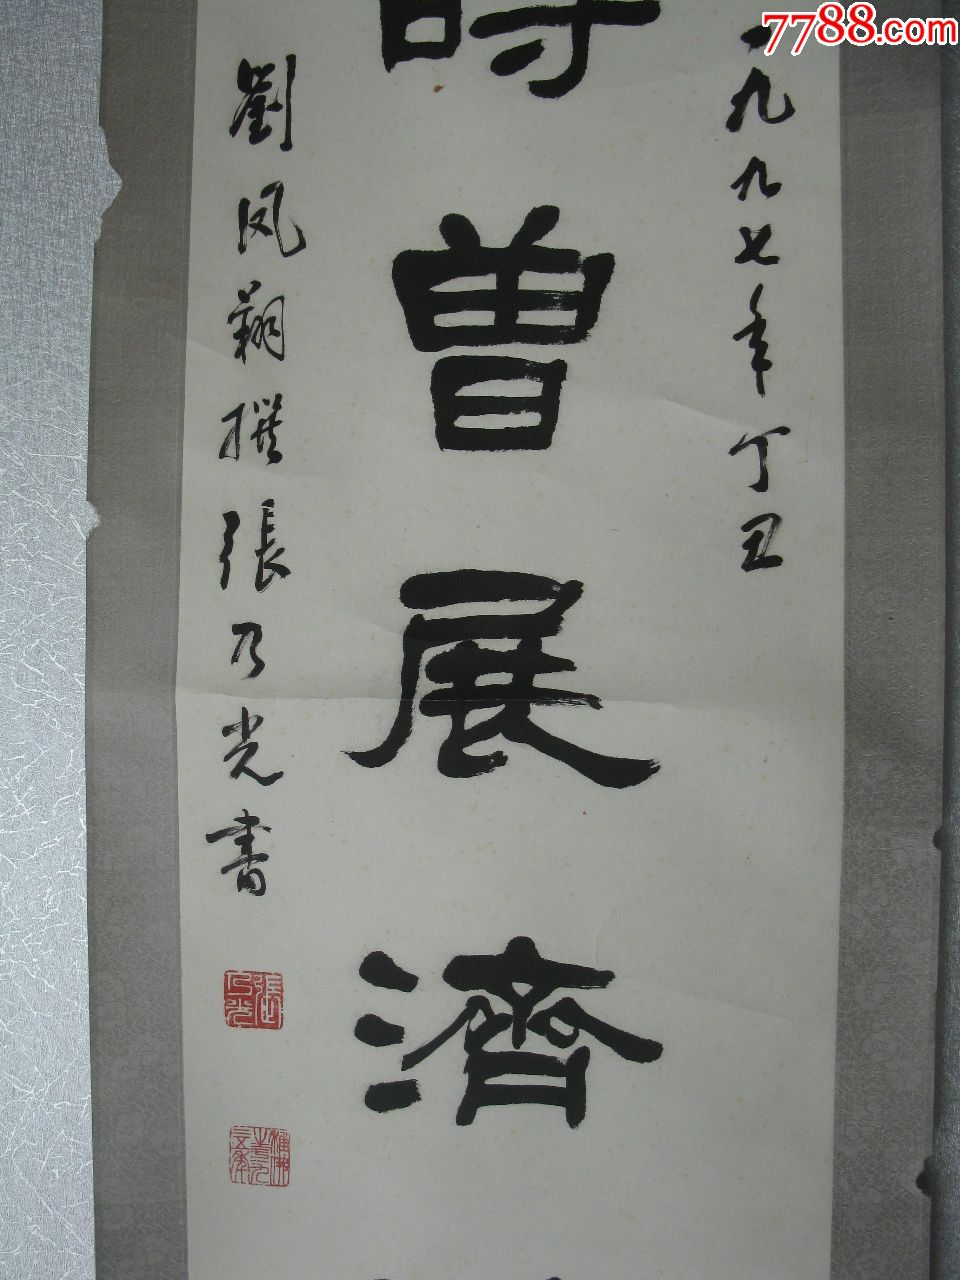 7788.com
一九九七年丁丑
時曾展濟
劉凤翔撰張乃光書
張乃光